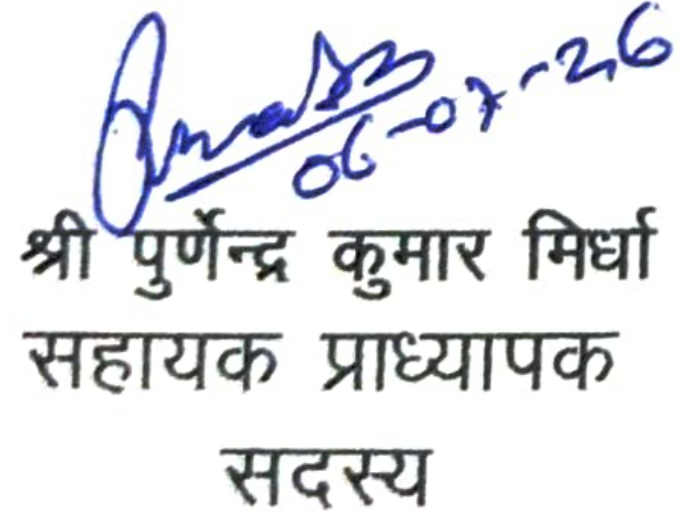 06-07-26
श्री पुर्णेन्द्र कुमार मिर्धा
सहायक प्राध्यापक
सदस्य